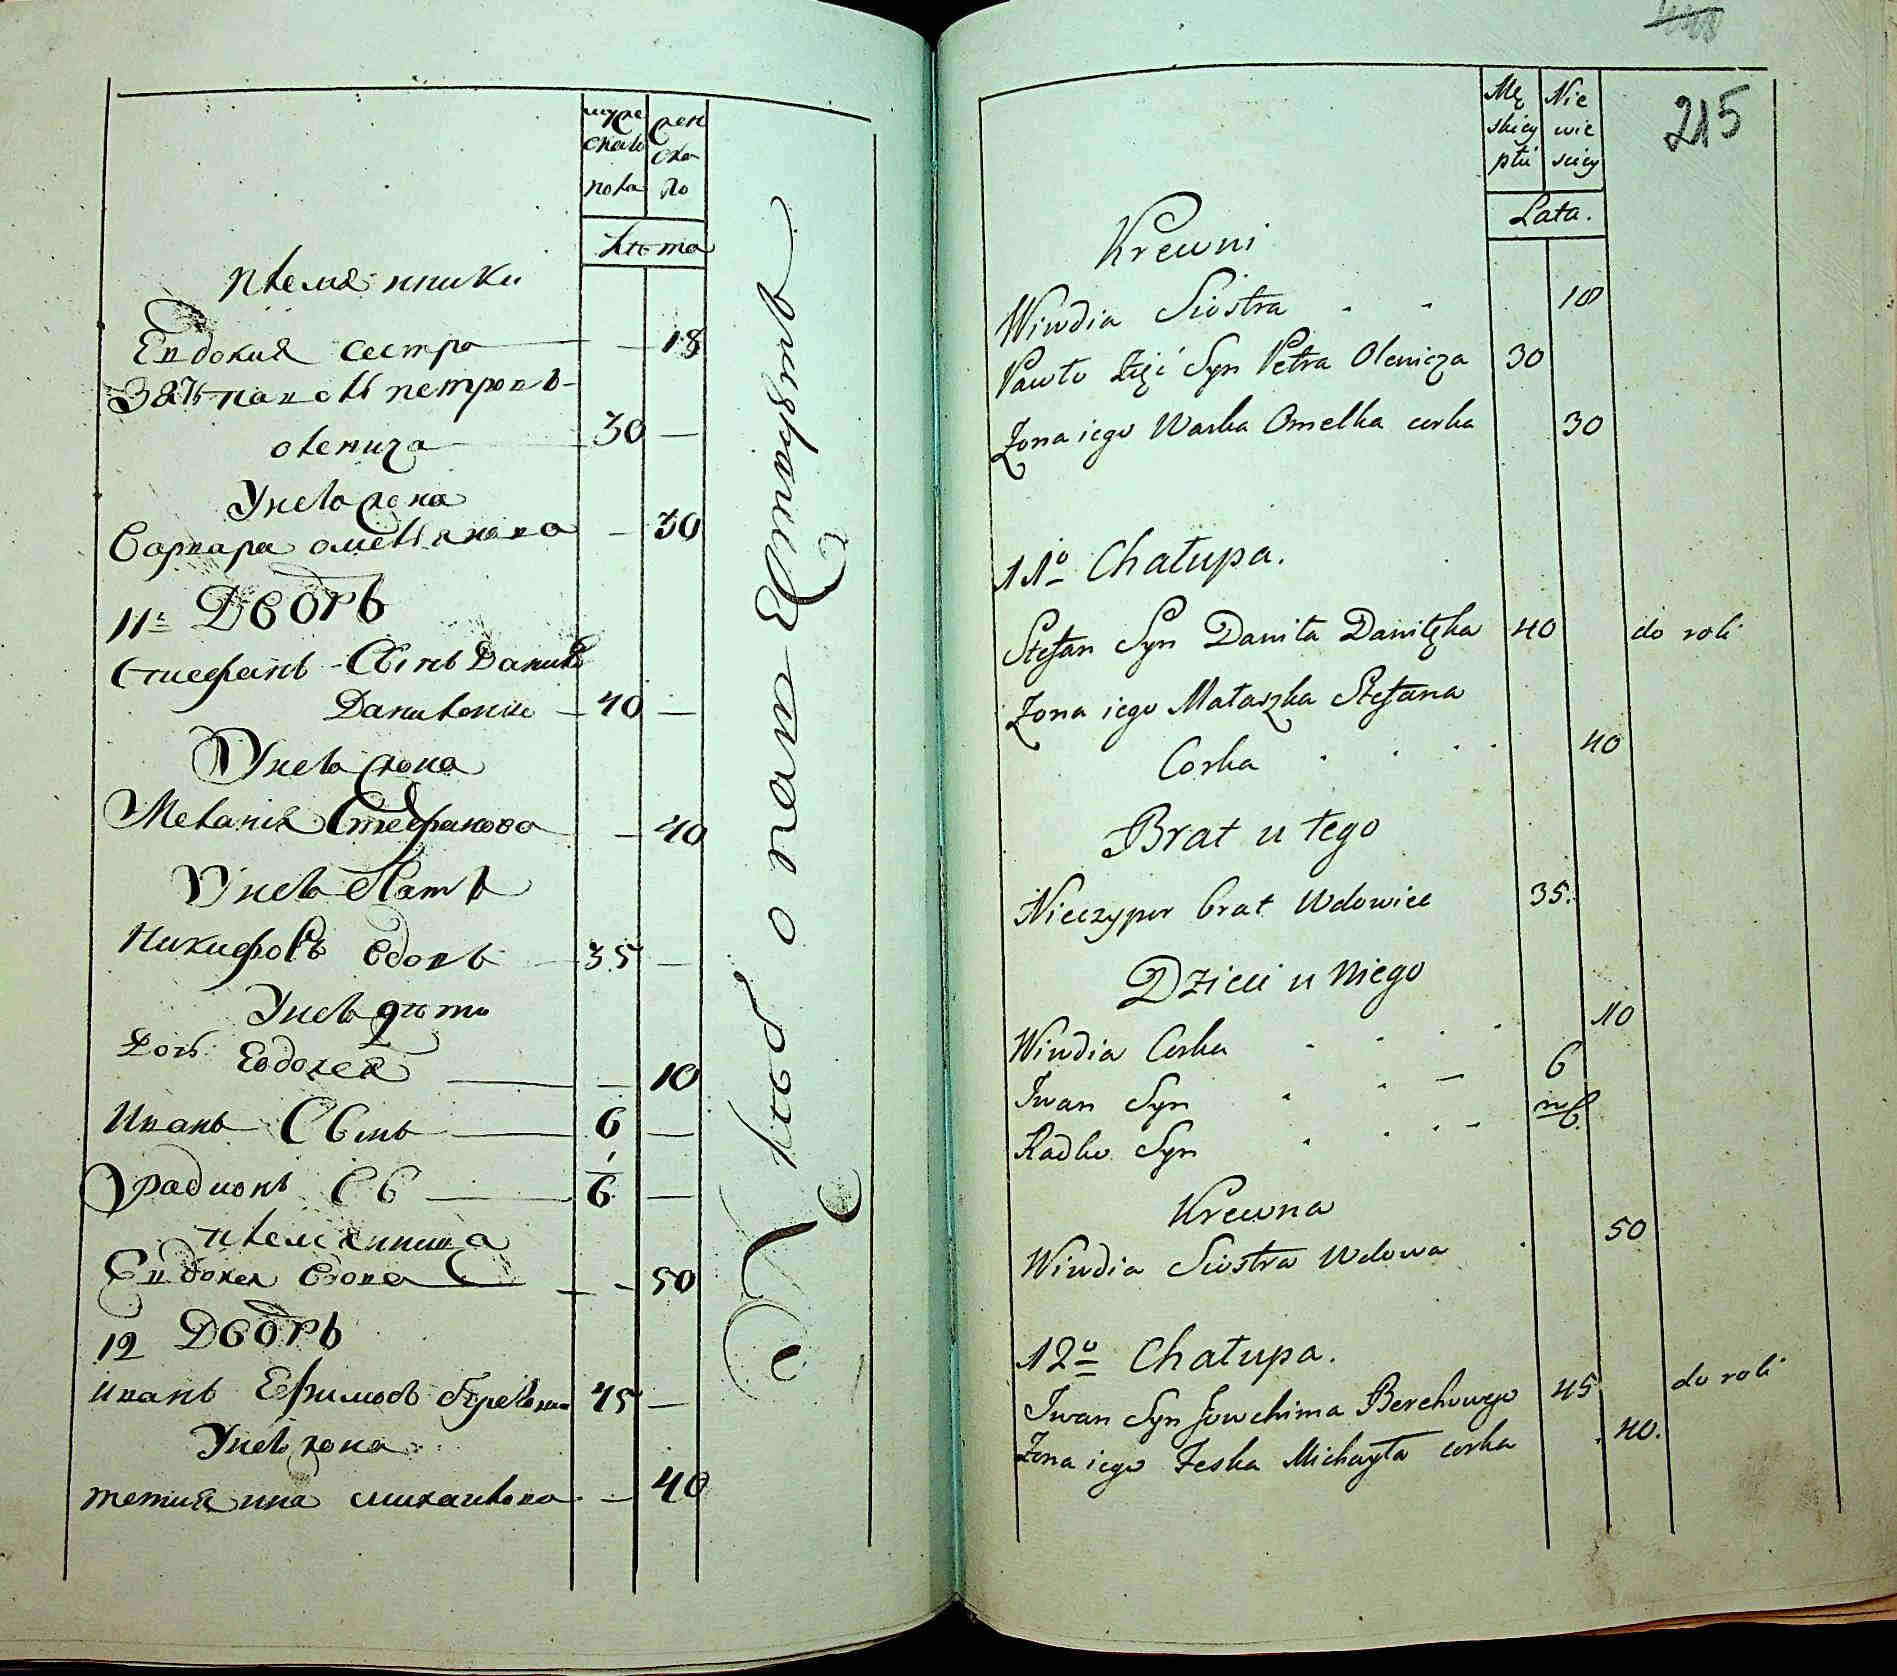 муже
ска
пола
жен
ска
по
лѣта
племянники
Евдокия сестра — 18
Зять павелъ петровъ
оленича 30 —
Унего жена
Варвара омелянова — 30
11: Дворъ
Стиефанъ Сынъ Данила
Даниленко — 40 —
Унего жена
Меланія Стефанова — 40
Унего братъ
Никифоръ вдовъ — 35 —
Унего дѣти
Дочь Евдокея — 10
Иванъ Сынъ — 6 —
Урадионъ СЫ — 1/6 —
племянница
Евдокея вдова — 50
12 Дворъ
иванъ Ефимовъ 45 —
Унего жена
тетиянна михаилова — 40
215
Mę
skiey
płci
Nie
wie
sciey
Lata.
Krewni
Wiwdia Siostra . - 18
Pawło Zięć Syn Petra Olenicza 30
Zona iego Warka Omelka corka 30
11o Chałupa.
Stefan Syn Daniła Daniłęka 40 do roli
Zona iego Małaszka Stefana
Corka . . . . 40
Brat u tego
Nieczypor brat Wdowiec 35.
Dzieci u Niego
Wiwdia Corka . . . . 10
Iwan Syn . . — 6
Radko Syn . . . - 1/6.
Krewna
Wiwdia Siostra Wdowa . 50
12o Chałupa.
Iwan Syn Jowchima Berehowego 45 do roli
Zona iego Teska Michayła corka . 40.